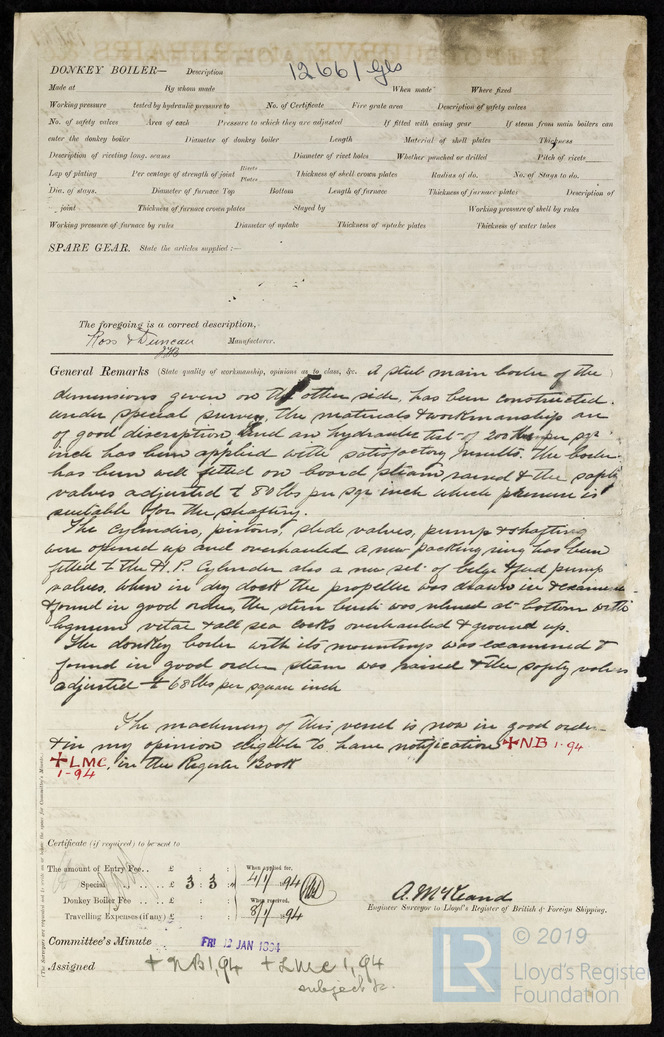 12661 Gls
DONKEY BOILER— Description
Made at By whom made When made Where fixed
Working pressure tested by hydraulic pressure to No. of Certificate Fire grate area Description of safety valves
No. of safety valves Area of each Pressure to which they are adjusted If fitted with easing gear If steam from main boilers can
enter the donkey boiler Diameter of donkey boiler Length Material of shell plates Thickness
Description of riveting long. seams Diameter of rivet holes Whether punched or drilled Pitch of rivets
Lap of plating Per centage of strength of joint Rivets Plates Thickness of shell crown plates Radius of do. No. of Stays to do.
Dia. of stays. Diameter of furnace Top Bottom Length of furnace Thickness of furnace plates Description of
joint Thickness of furnace crown plates Stayed by Working pressure of shell by rules
Working pressure of furnace by rules Diameter of uptake Thickness of uptake plates Thickness of water tubes
SPARE GEAR. State the articles supplied:—
The foregoing is a correct description,
Ross & Duncan Manufacturer.
General Remarks (State quality of workmanship, opinions as to class, &c. A steel main boiler of the
dimensions given on the other side, has been constructed
under special survey, the materials & workmanship are
of good discription and an hydraulic test of 200 lbs per sqr
inch has been applied with satisfactory results. The boiler
has been well fitted on board steam raised & the safety
valves adjusted to 80 lbs per sqr inch which pressure is
suitable for the shafting.
The Cylinders, pistons, slide valves, pumps & shafting
were opened up and overhauled a new packing ring has been
fitted to the H.P. Cylinder also a new set of bilge & feed pump
valves, when in dry dock the propeller was drawn in & examined
& found in good order, the stern bush was relined at bottom with
lignum vitae & all sea cocks overhauled & ground up.
The donkey boiler with its mountings was examined &
found in good order steam was raised & the safty valves
adjusted to 68 lbs per square inch
The machinery of this vessel is now in good order
& in my opinion eligible to have notification +NB 1-94
+LMC 1-94, in the Register Book
(The Surveyors are requested not to write on or below the space for Committee's Minute.)
Certificate (if required) to be sent to
The amount of Entry Fee.. £ : : When applied for,
Special .. .. £ 3 : 3 : 4/1/94
Donkey Boiler Fee .. .. £ : : When received,
Travelling Expenses (if any) £ : : 8/1/94
Engineer Surveyor to Lloyd's Register of British & Foreign Shipping.
Committee's Minute FRI 12 JAN 1894
Assigned + NB 1,94 + LMC 1,94
subject &c.
© 2019
LR
Lloyd's Register
Foundation